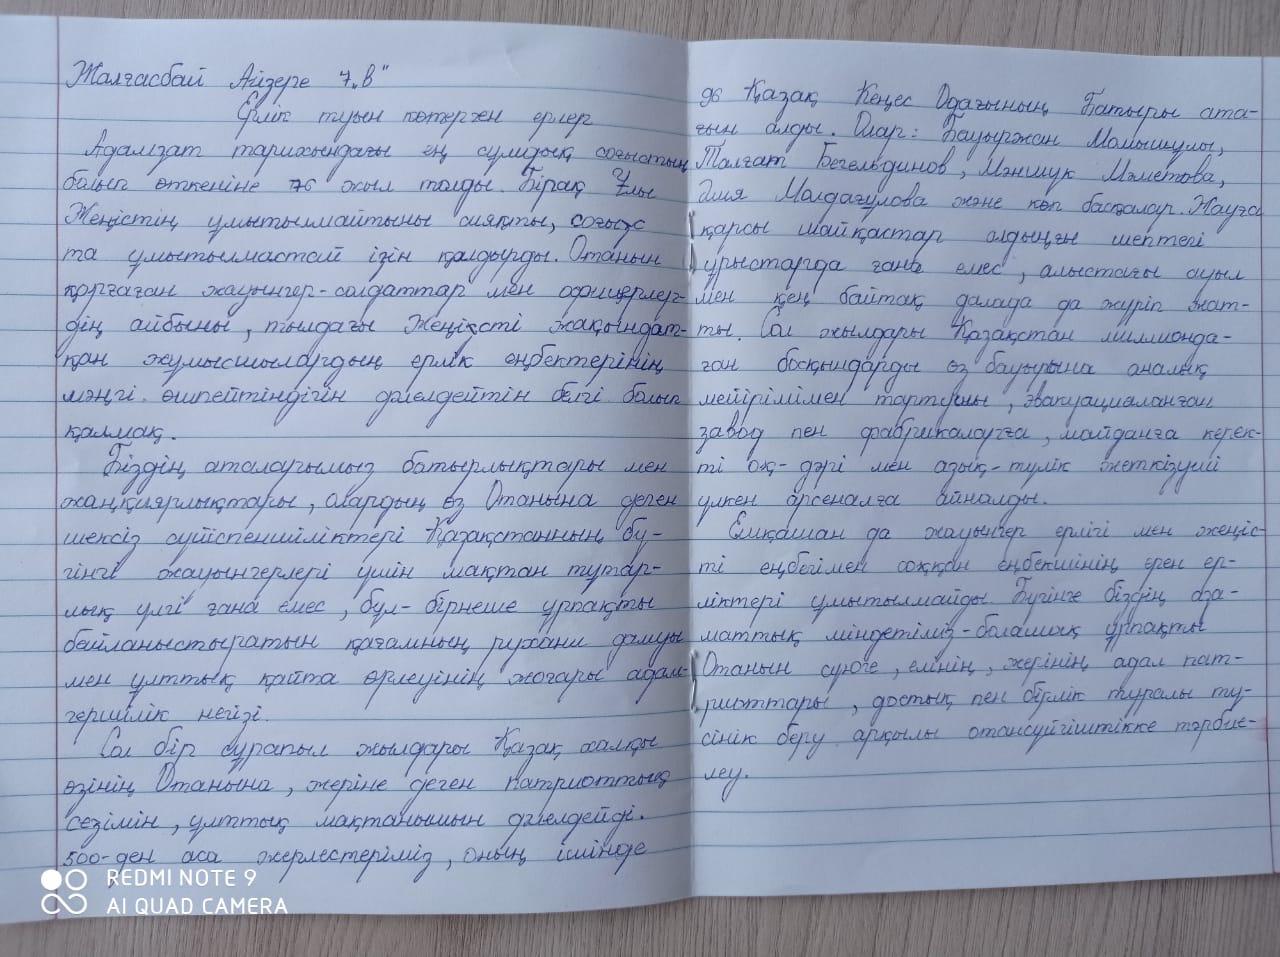 Жалғасбай Айзере 7 „В"
Ерлік туын көтерген ерлер
Адамзат тарихындағы ең сұмдық соғыстың
болып өткеніне 76 жыл толды. Бірақ Ұлы
Жеңістің ұмытылмайтыны сияқты, соғыс
та ұмытылмастай ізін қалдырды. Отанын
қорғаған жауынгер-солдаттар мен офицерлер-
дің айбыны, тылдағы Жеңісті жақындат-
қан жұмысшылардың ерлік еңбектерінің
мәңгі өшпейтіндігін дәлелдейтін белгі болып
қалмақ.
Біздің аталарымыз батырлықтары мен
жанқиярлықтары, олардың өз Отанына деген
шексіз сүйіспеншіліктері Қазақстанның бү-
гінгі жауынгерлері үшін мақтан тұтар-
лық үлгі ғана емес, бұл- бірнеше ұрпақты
байланыстыратын қоғамның рухани дамуы
мен ұлттық қайта өрлеуінің жоғары адам-
гершілік негізі.
Сол бір сұрапыл жылдары Қазақ халқы
өзінің Отанына, жеріне деген патриоттық
сезімін, ұлттық мақтанышын дәлелдейді.
500-ден аса жерлестеріміз, оның ішінде
96 Қазақ Кеңес Одағының Батыры ата-
ғын алды. Олар: Бауыржан Момышұлы,
Талғат Бегельдинов, Мәншүк Мәметова,
Әлия Молдағұлова және көп басқалар. Жауға
қарсы шайқастар алдыңғы шептегі
ұрыстарда ғана емес, алыстағы ауыл
мен кең байтақ далада да жүріп жат-
ты. Сол жылдары Қазақстан миллионда-
ған босқындарды өз бауырына аналық
мейірімімен тартушы, эвакуацияланған
завод пен фабрикаларға, майданға керек-
ті оқ- дәрі мен азық-түлік жеткізуші
үлкен арсеналға айналды.
Ешқашан да жауынгер ерлігі мен жеңіс-
ті еңбегімен соққан еңбекшінің ерен ер-
ліктері ұмытылмайды. Бүгінге біздің аза-
маттық міндетіміз-болашақ ұрпақты
Отанын сүюге, елінің, жерінің адал пат-
риоттары, достық пен бірлік туралы тү-
сінік беру арқылы отансүйгіштікке тәрбие-
леу.
REDMI NOTE 9
AI QUAD CAMERA